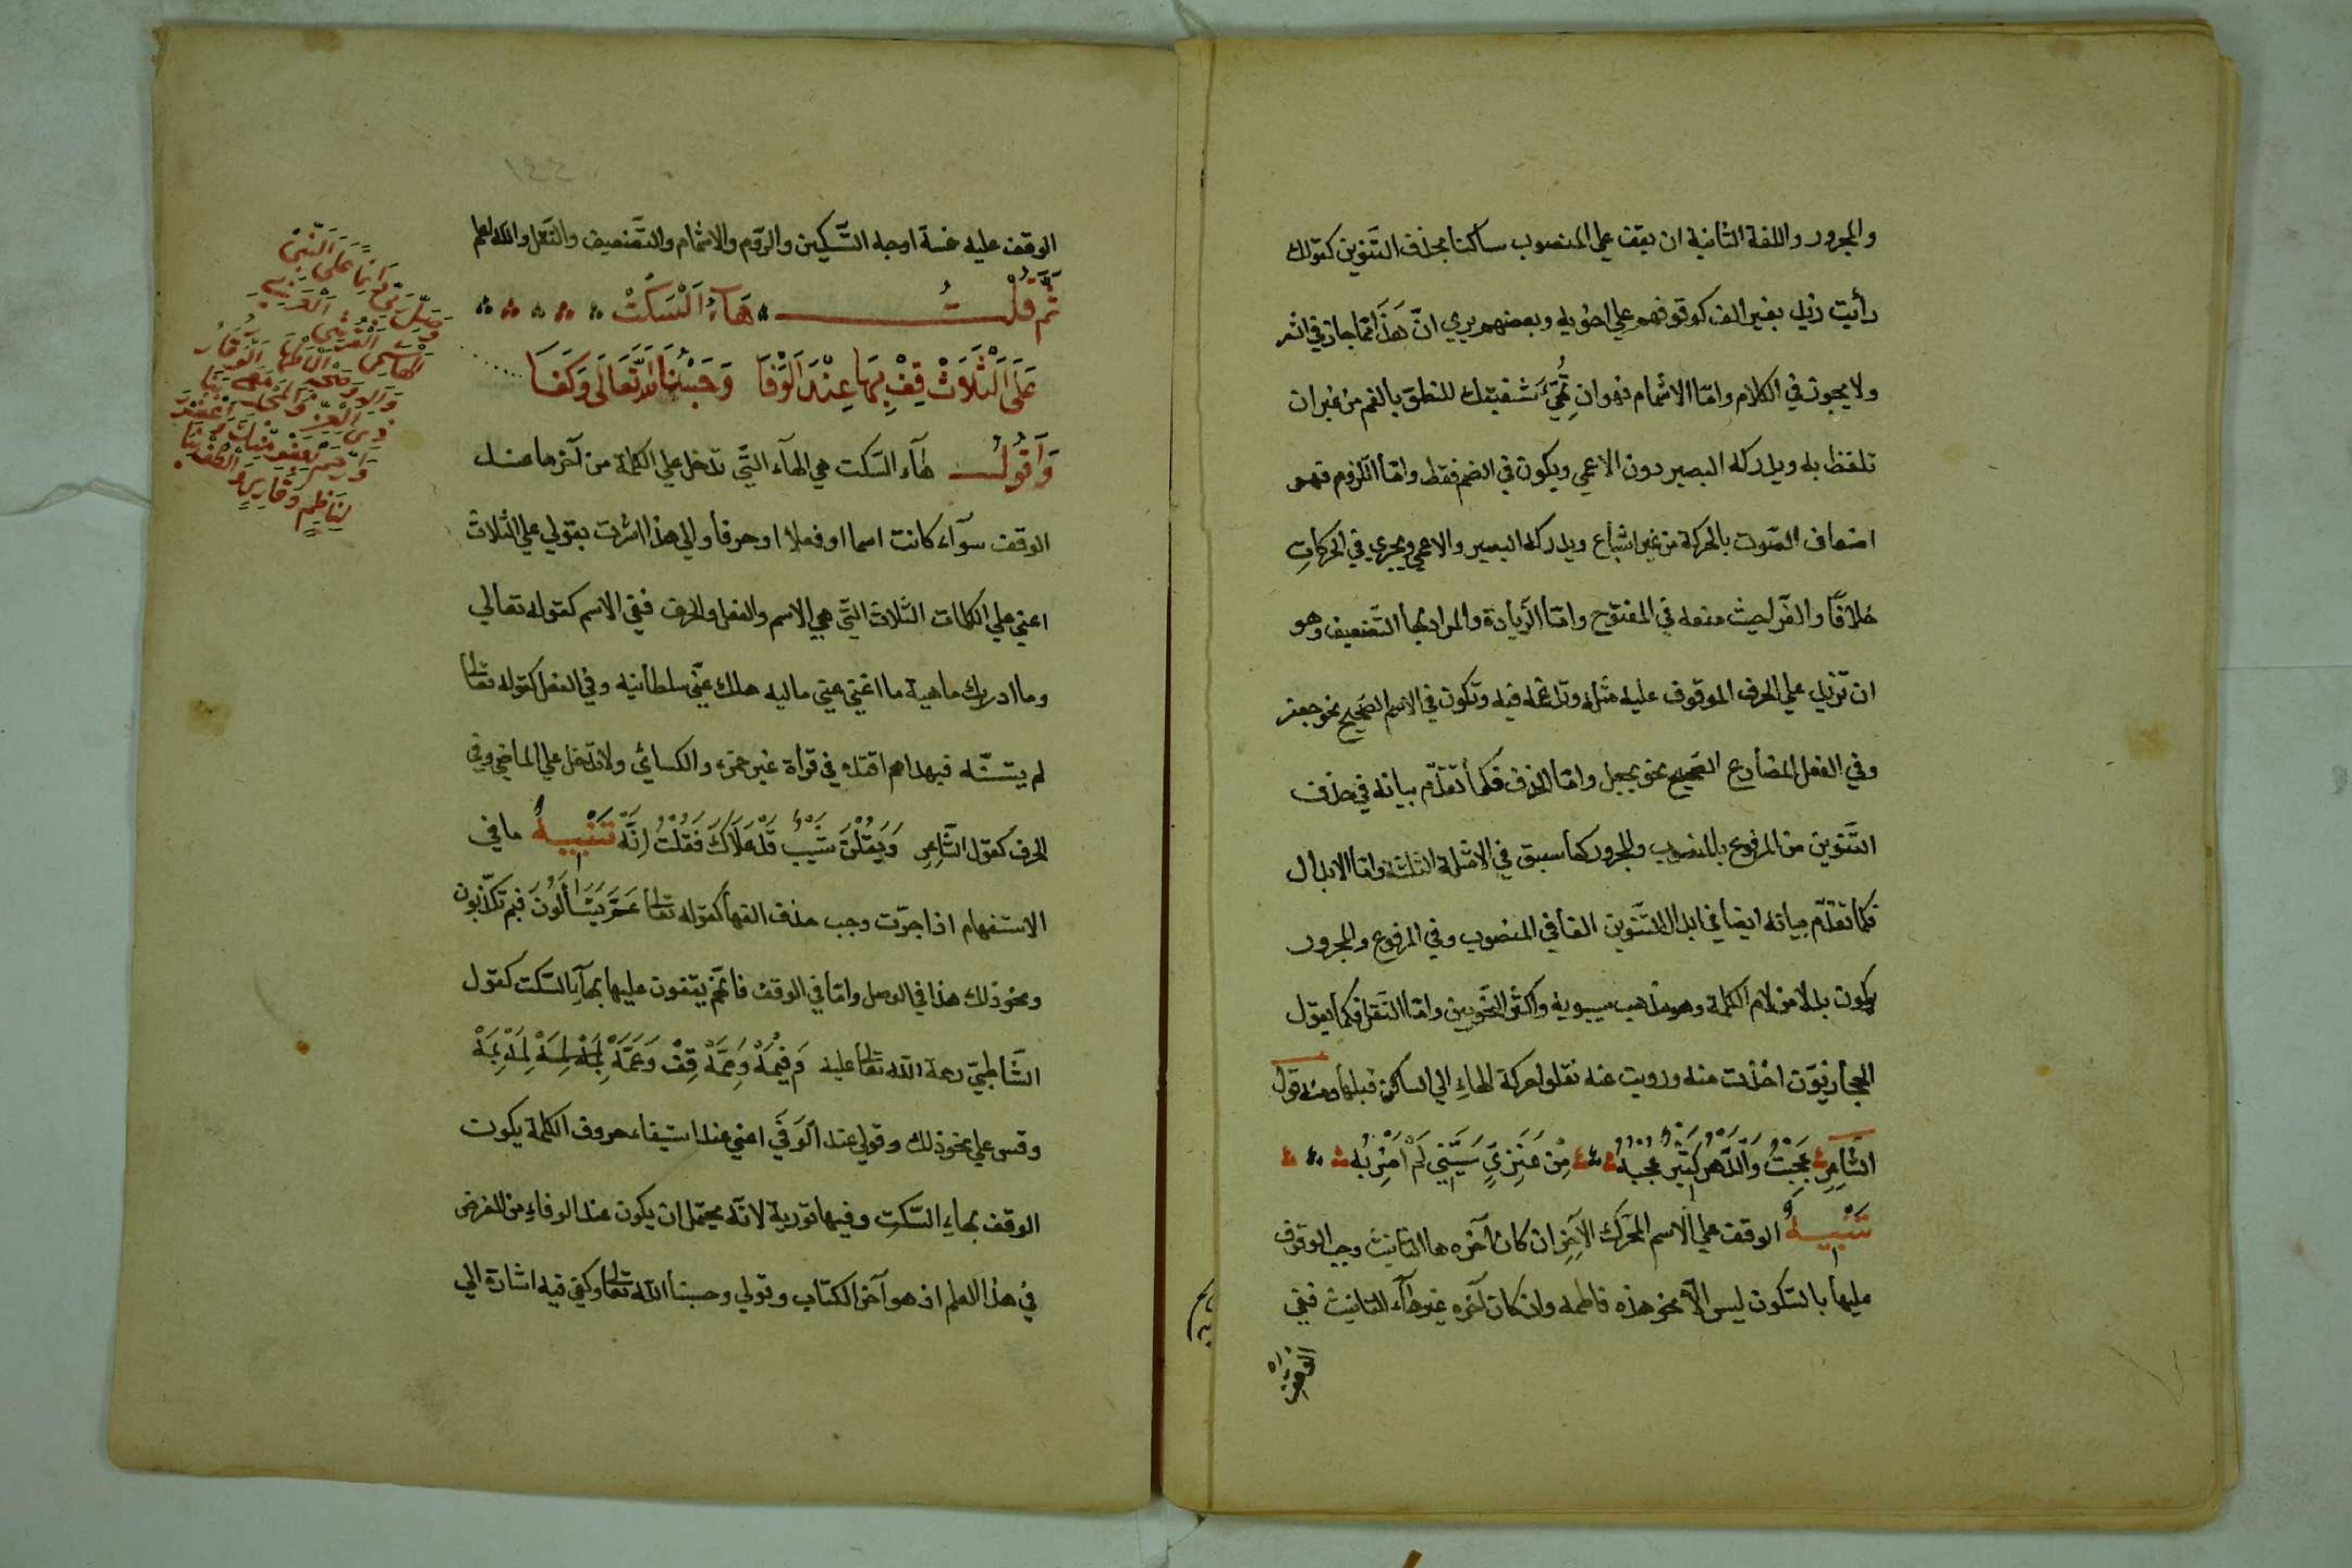 والمجرور واللغة الثانية ان يقف علي المنصوب ساكنا بحذف التنوين كقولك
رأيت زيد بغير الف كوقوفهم علي اخويه وبعضهم يري انّ هَذَا انما جاز في الشعر
ولا يجوز في الكلام وامّا الاشمام فهو ان تُهَيِّئَ شفتيك للنطق بالضم من غير ان
تلفظ به ويدركه البصير دون الاعمي ويكون في الضم فقط وامّا الرّوم فهو
اضعاف الصّوت بالحركة من غير اشباع ويدركه البصير والاعمي ويجري في الحركاتِ
خلافًا والفرّا حيث منعه في المفتوح وامّا الزّيادة والمراد بها التّضعيف وهو
ان تزيد علي الحرف الموقوف عليه مثله وتدغمه فيه وتكون في الاسم الصّحيح نحو جعفر
وفي الفعل المضارع الصّحيح نحو يجعل وامّا الحذف فكما تقدّم بيانه في حذف
التّنوين من المرفوع بالمنصوب والمجرور كما سبق في الامثلة الثلثة وامّا الابدال
فكما تقدّم بيانه ايضا في ابدال التّنوين الفا في المنصوب وفي المرفوع والمجرور
يكون بدلا من لام الكلمة وهو مذهب سيبويه واكثر النّحويين وامّا النّقل فكما يقول
الحجازيّون اخذت منه ورويت عنه نقلوا حركة الهاءِ الي الساكن قبلها ومنه قول
الشَّاعِرِ عَجِبْتُ وَالدَّهْرُ كَثِيرٌ عَجَبُهْ مِنْ عَنَزِيٍّ سَبَّنِي لَمْ اَضْرِبُهْ
تَنْبِيهٌ الوقف علي الاسم المحرّك الآخِرِ ان كان آخره ها التانيث وجب الوقوف
عليها بالسّكون ليس الّا نحو هذه فاطمه وان كان آخره غير هآء التانيث ففي
الوقف
الوقف عليه خمسة اوجه التّسكين والرّوم والاشمام والتّضعيف والنّقل والله اعلم
ثُمَّ قُلْتُ هَآءُ اَلْسَكْتْ
عَلَى اَلْثَلَاثْ قِفْ بِهَا عِنْدَ اَلْوَفَا وَحَسْبُنَا اَللهُ تَعَالَى وَكَفَا
وَاَقُولُ هآء السّكت هي الهآء الّتي تدخل علي الكلمة من آخرها عند
الوقف سوآء كانت اسما او فعلا او حرفا والي هذا اشرت بقولي علي الثّلاث
اعني علي الكلمات الثّلاث الّتي هي الاسم والفعل والحرف ففي الاسم كقوله تعالي
وما ادريك ماهية ما اغني عني ماليه هلك عنّي سلطانيه وفي الفعل كقوله تعالي
لم يتسنّه فبهداهم اقتده في قرأة غير حمزه والكسائي ولا تدخل علي الماضي وفي
الحرف كقول الشَّاعِرِ وَيَقُلْنَ شَيْبٌ قَدْ عَلَاكَ فَقُلْتُ اِنَّهْ تَنْبِيهٌ ما في
الاستفهام اذا جرّت وجب حذف الفها كقوله تعالي عَمَّ يَتَسَاَلُونَ فبم تكذّبون
ونحو ذلك هذا في الوصل وامّا في الوقف فانّهم يقفون عليها بهآءِ السّكت كقول
الشّاطبيّ رحمة الله تعالي عليه وَفِيمَهْ وَمِمَّهْ قِفْ وَعَمَّهْ لِمَهْ بِمَهْ
وقس علي نحو ذلك وقولي عند اَلْوَفَي اعني عند استيفاء حروف الكلمة يكون
الوقف بهاءِ السّكت وفيها تورية لانّه يحتمل ان يكون عند الوفاءِ من الغرض
في هذا العلم اذ هو آخر الكتاب وقولي وحسبنا الله تعالي وكفي فيه اشارة الي
وَصَلِّ رَبِّ دَائِمًا عَلَى اَلنَّبِيّ
لِنَاظِمٍ وَقَارِيٍ